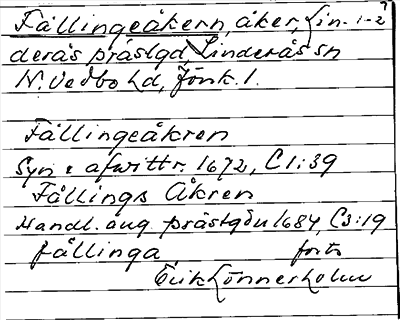 Fällingeåkern, åker, Lin- 1-2
deräs prästgd, Linderås sn
N. Vedbo hd, Jönk. l.
Fällingeåkren
Syn & afwittr. 1672, C1:39
Fällings Åkren
Handl. ang. prästgdn 1684, C3:19
fällinga forts
Erik Lönnerholm